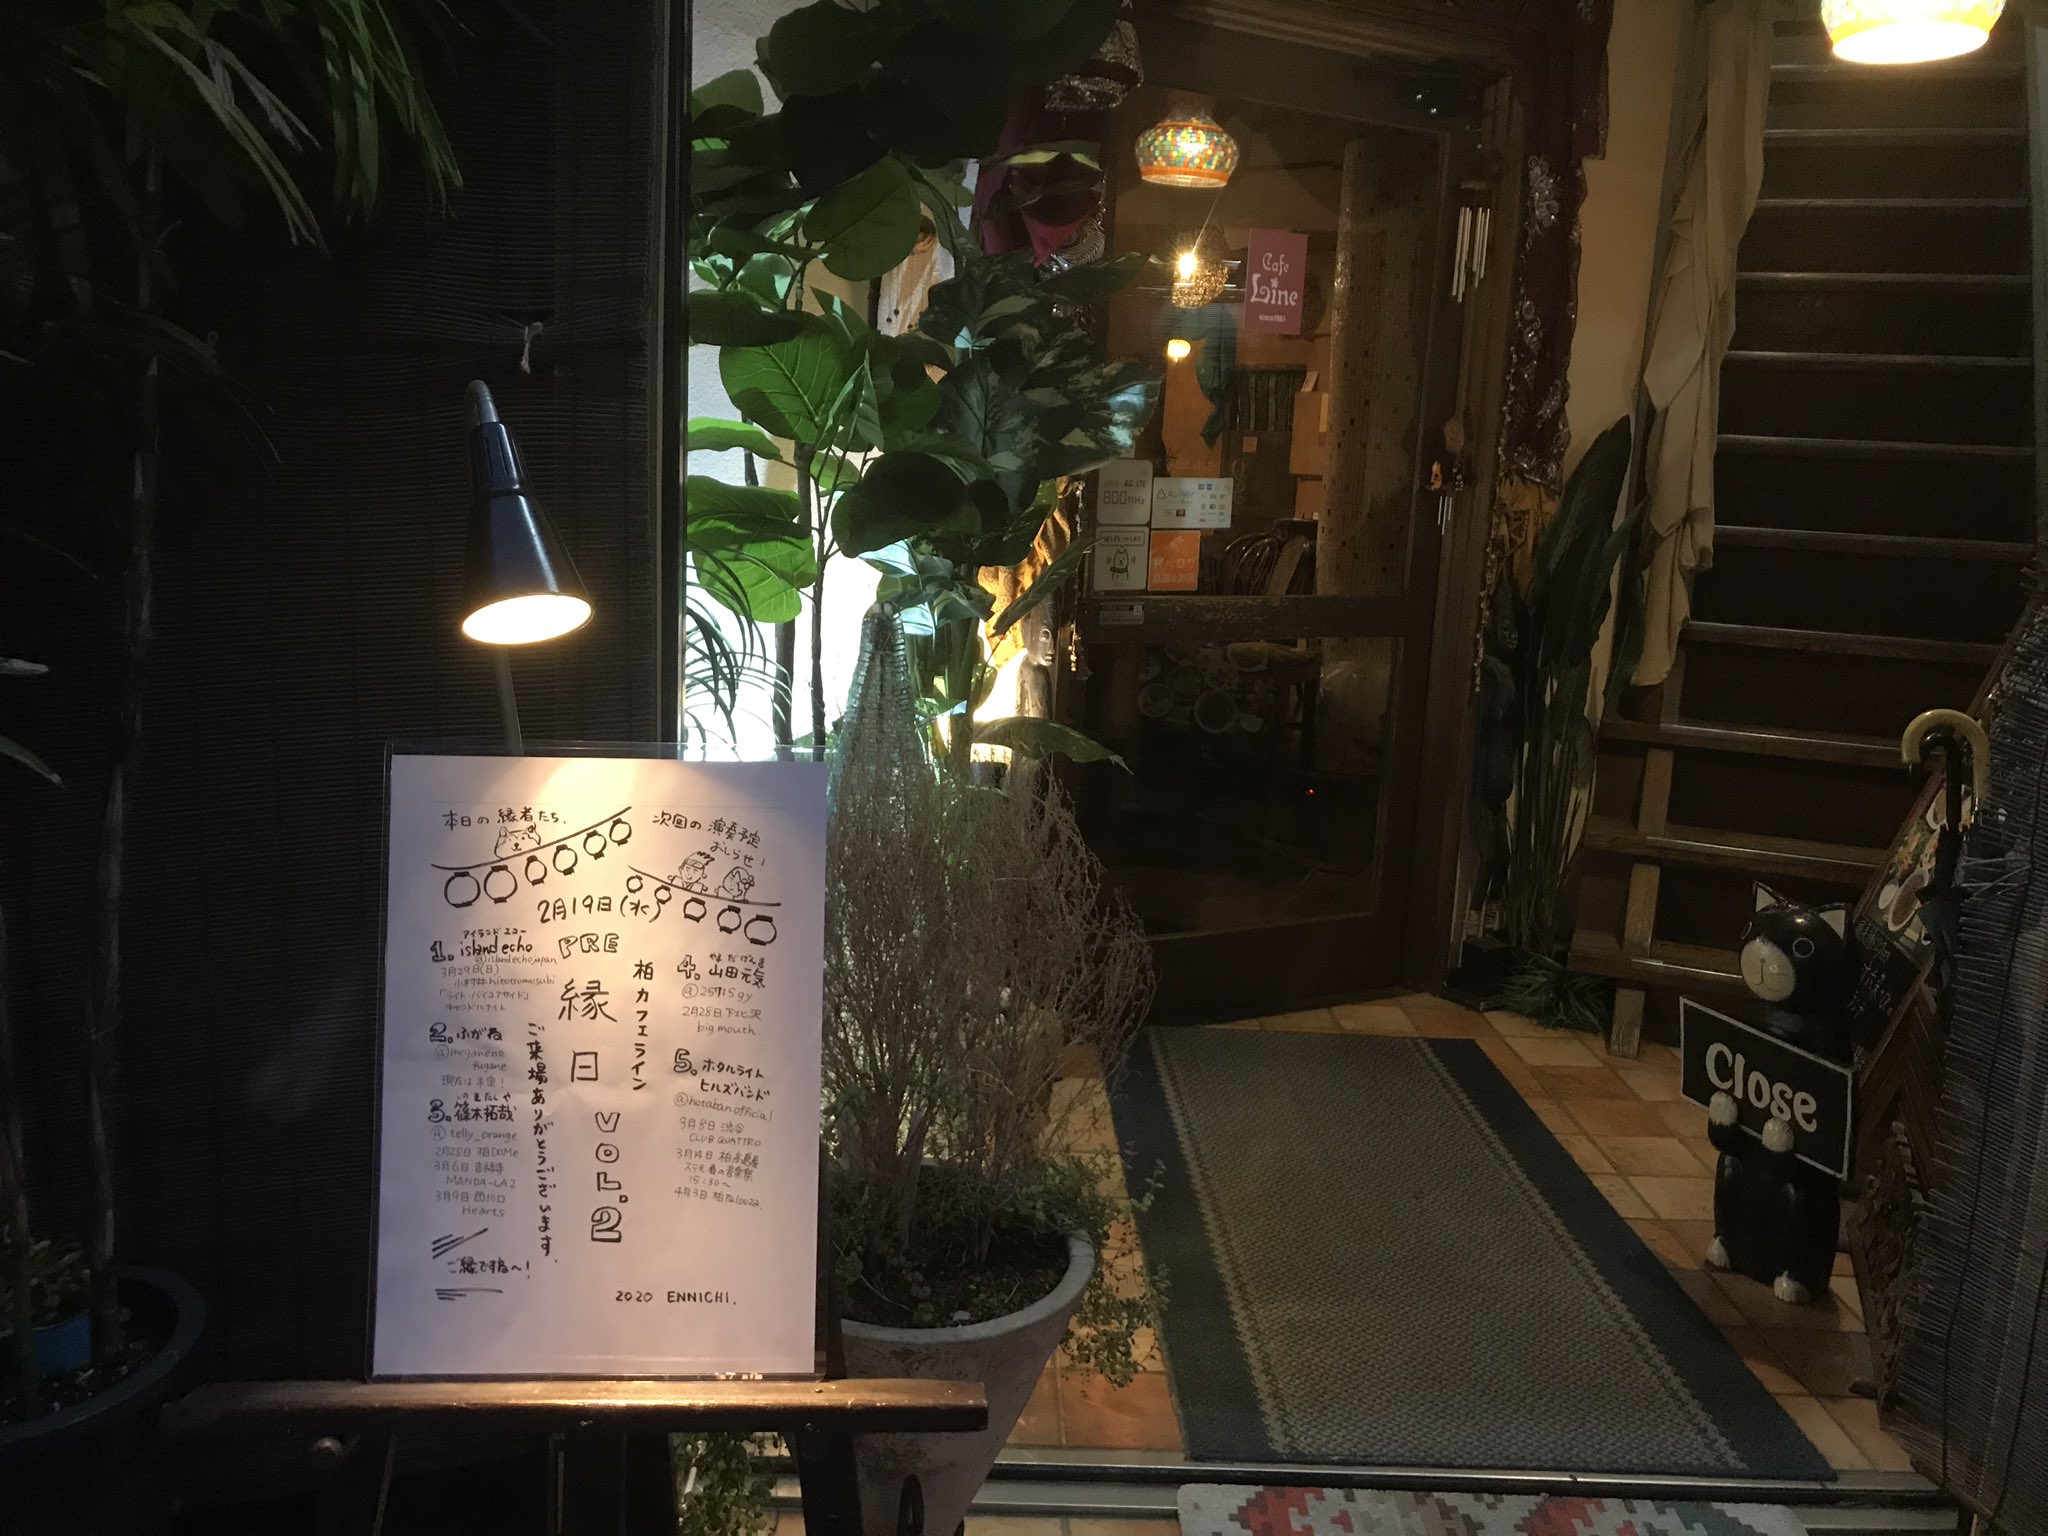 本日の縁者たち、
次回の演奏予定
おしらせ！
2月19日(水)
PRE
縁日
VOL.2
柏カフェライン
ご来場ありがとうございます。
アイランドエコー
1. island echo
@islandechojapan
3月29日(日)
小村井hitotsumusubi
「ライト・バイユアサイド」
キャンドルナイト
2. ふがね
@meganeno
fugane
現在は未定！
しのきたくや
3. 篠木拓哉
@telly_orange
2月28日 柏DOMe
3月6日 吉祥寺
MANDA-LA2
3月9日 西川口
Hearts
ご縁ですね〜！
やまだげんき
4. 山田元気
@25715gy
2月28日下北沢
big mouth
5. ホタルライト
ヒルズバンド
@hotabanofficial
3月8日 渋谷
CLUB QUATTRO
3月14日 柏高島屋
ステモ春の音楽祭
15:30〜
4月3日 柏Palooza
2020 ENNICHI.
Cafe
Line
4G LTE
800MHz
AirPAY
Close